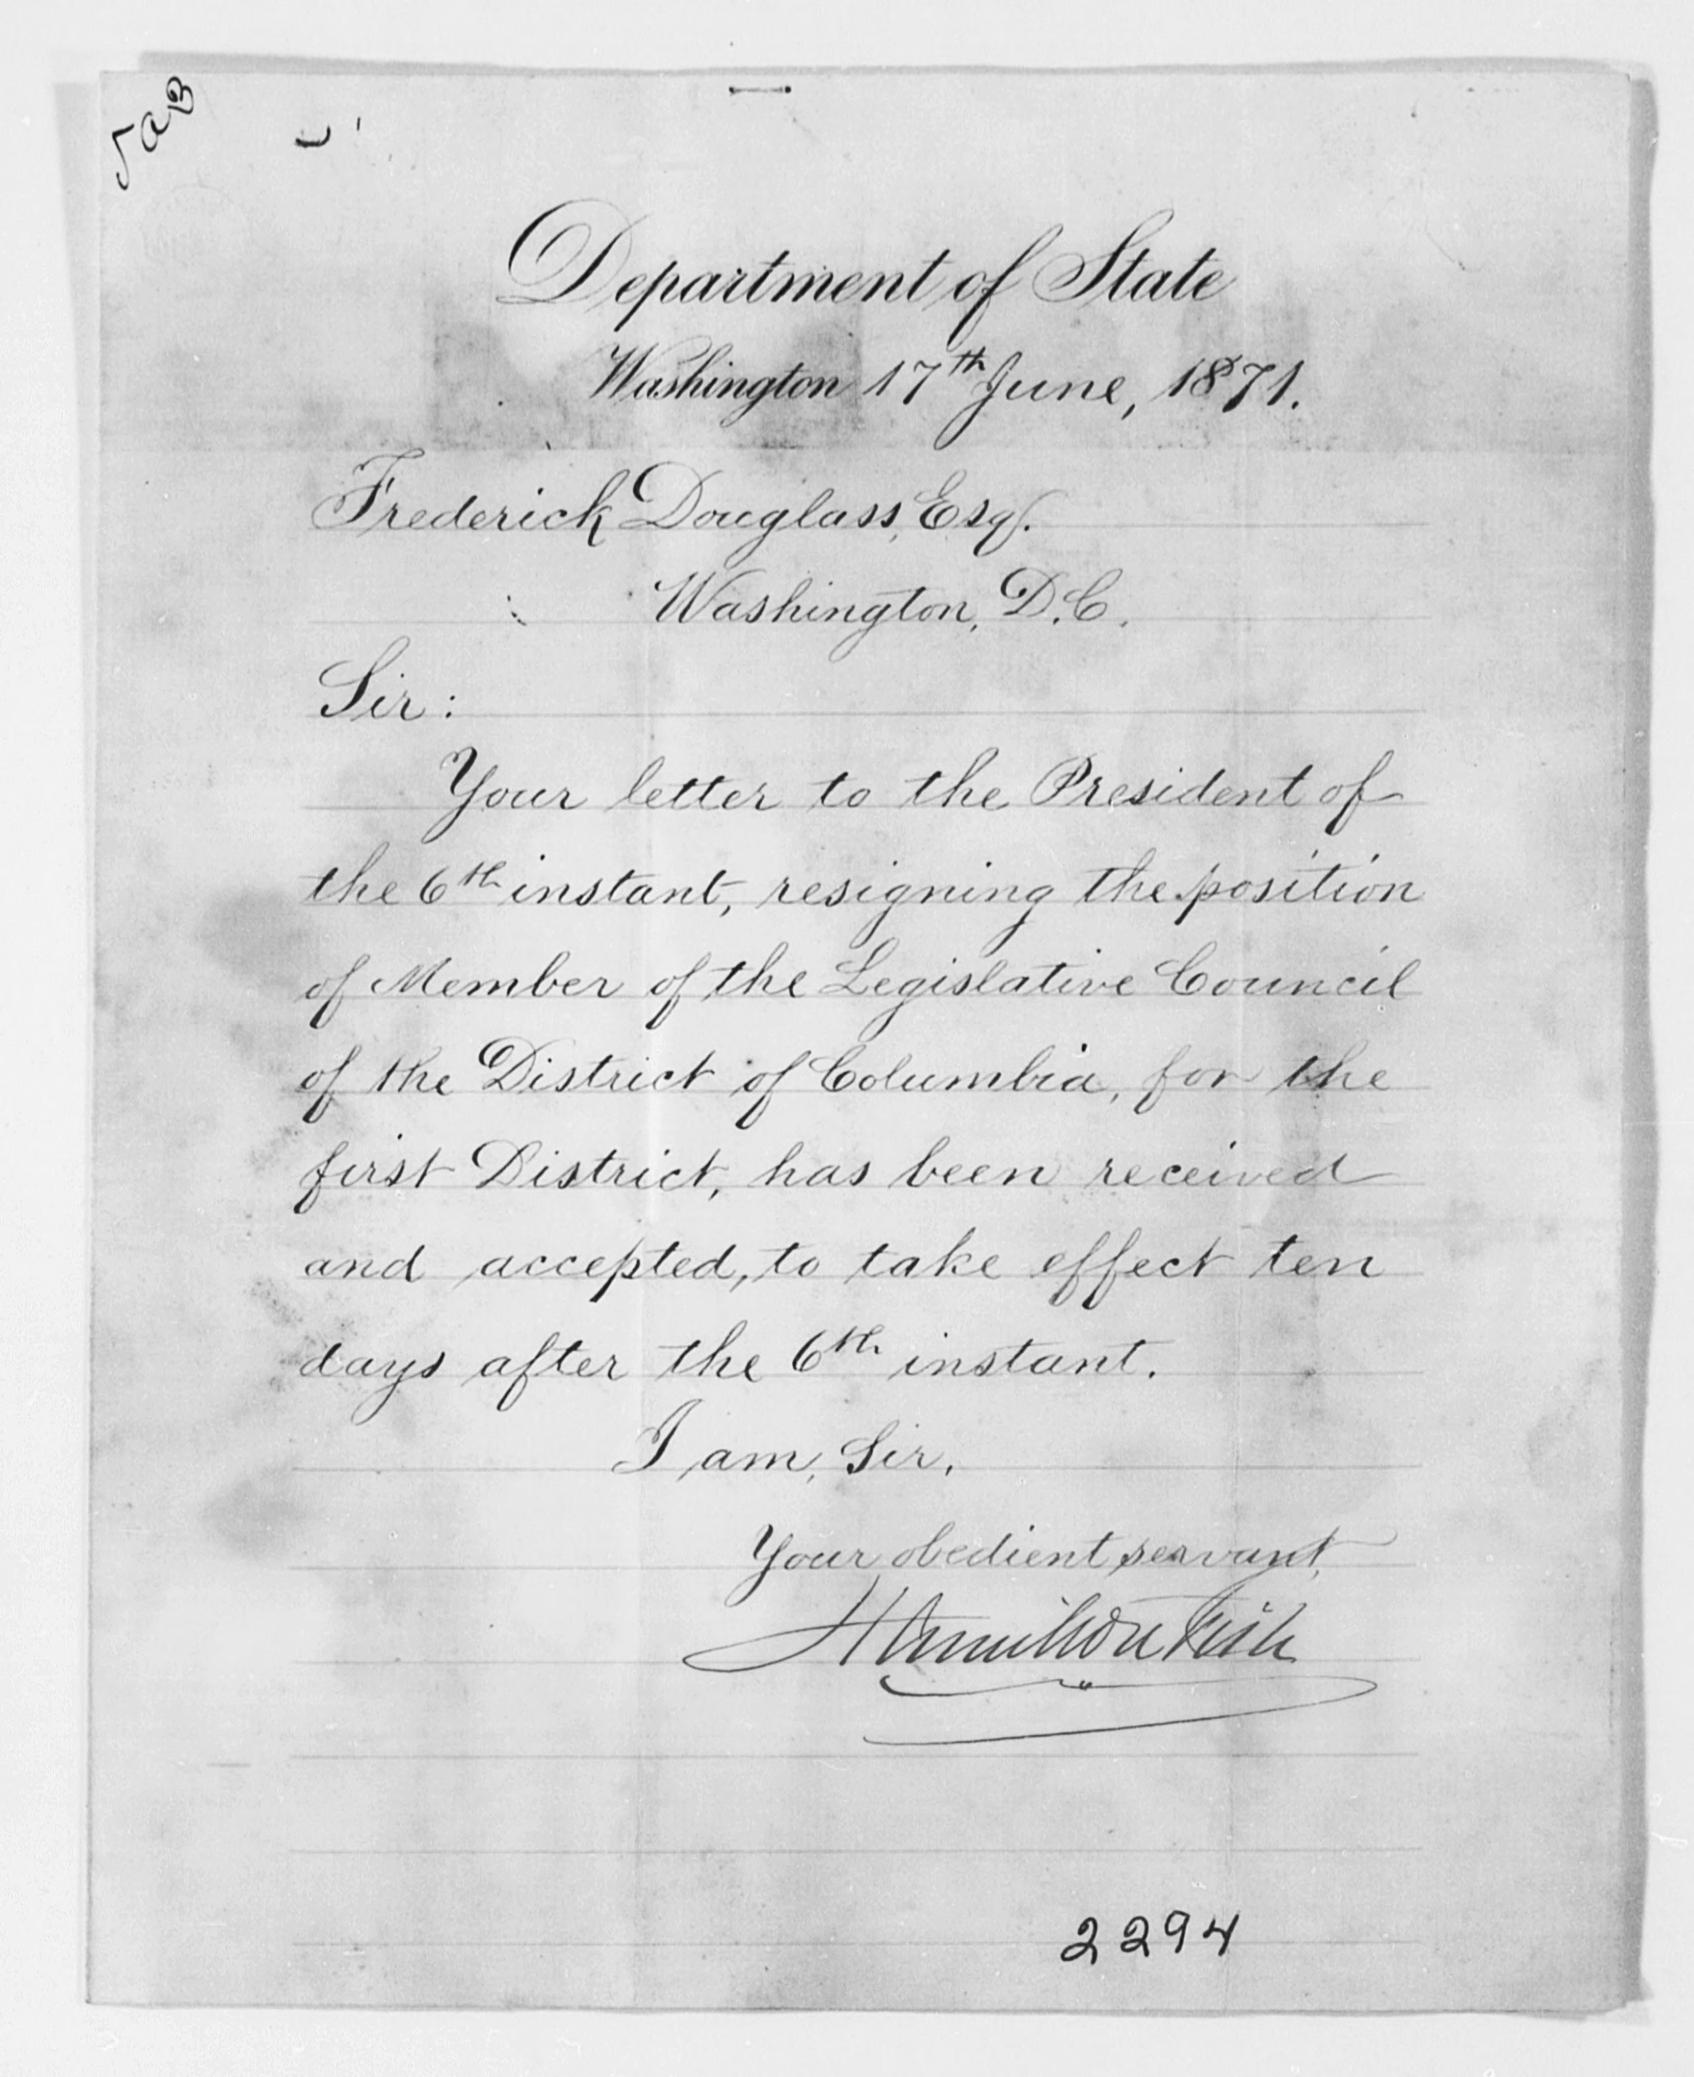 5aB
Department of State
Washington 17th June, 1871.
Frederick Douglass, Esq.
Washington, D.C.
Sir:
Your letter to the President of
the 6th instant, resigning the position
of Member of the Legislative Council
of the District of Columbia, for the
first District, has been received
and accepted, to take effect ten
days after the 6th instant.
I am, Sir,
Your obedient servant,
Hamilton Fish
2294